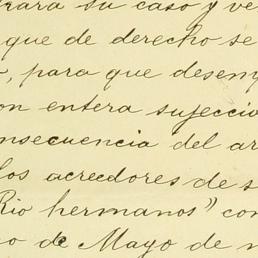 trará su caso y ve
que de derecho se
, para que desem
on entera sujecció
nsecuencia del ar
los acreedores de s
Rio hermanos" con
o de Mayo de m